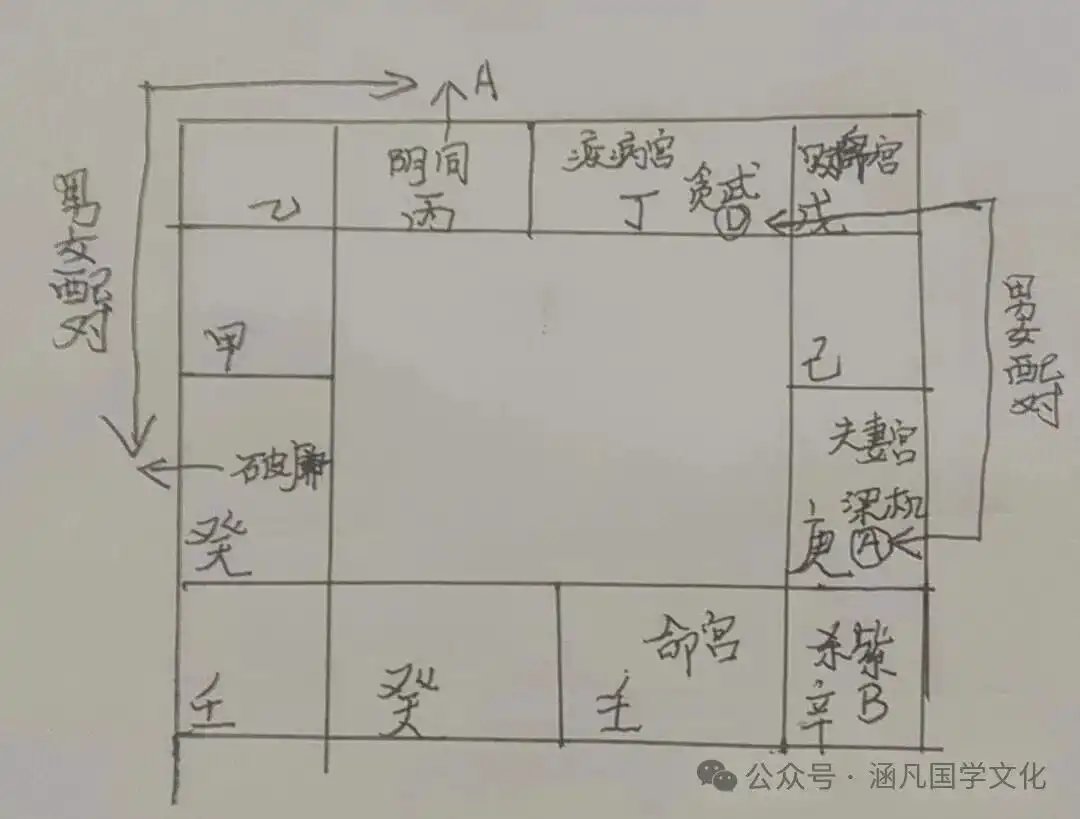 A
男女配对
乙
阴同
丙
疾病宫
丁
贪武
D
宫
戊
甲
己
男女配对
破廉
癸
夫妻宫
梁机
庚
A
壬
癸
命宫
壬
杀紫
辛
B
公众号·涵凡国学文化